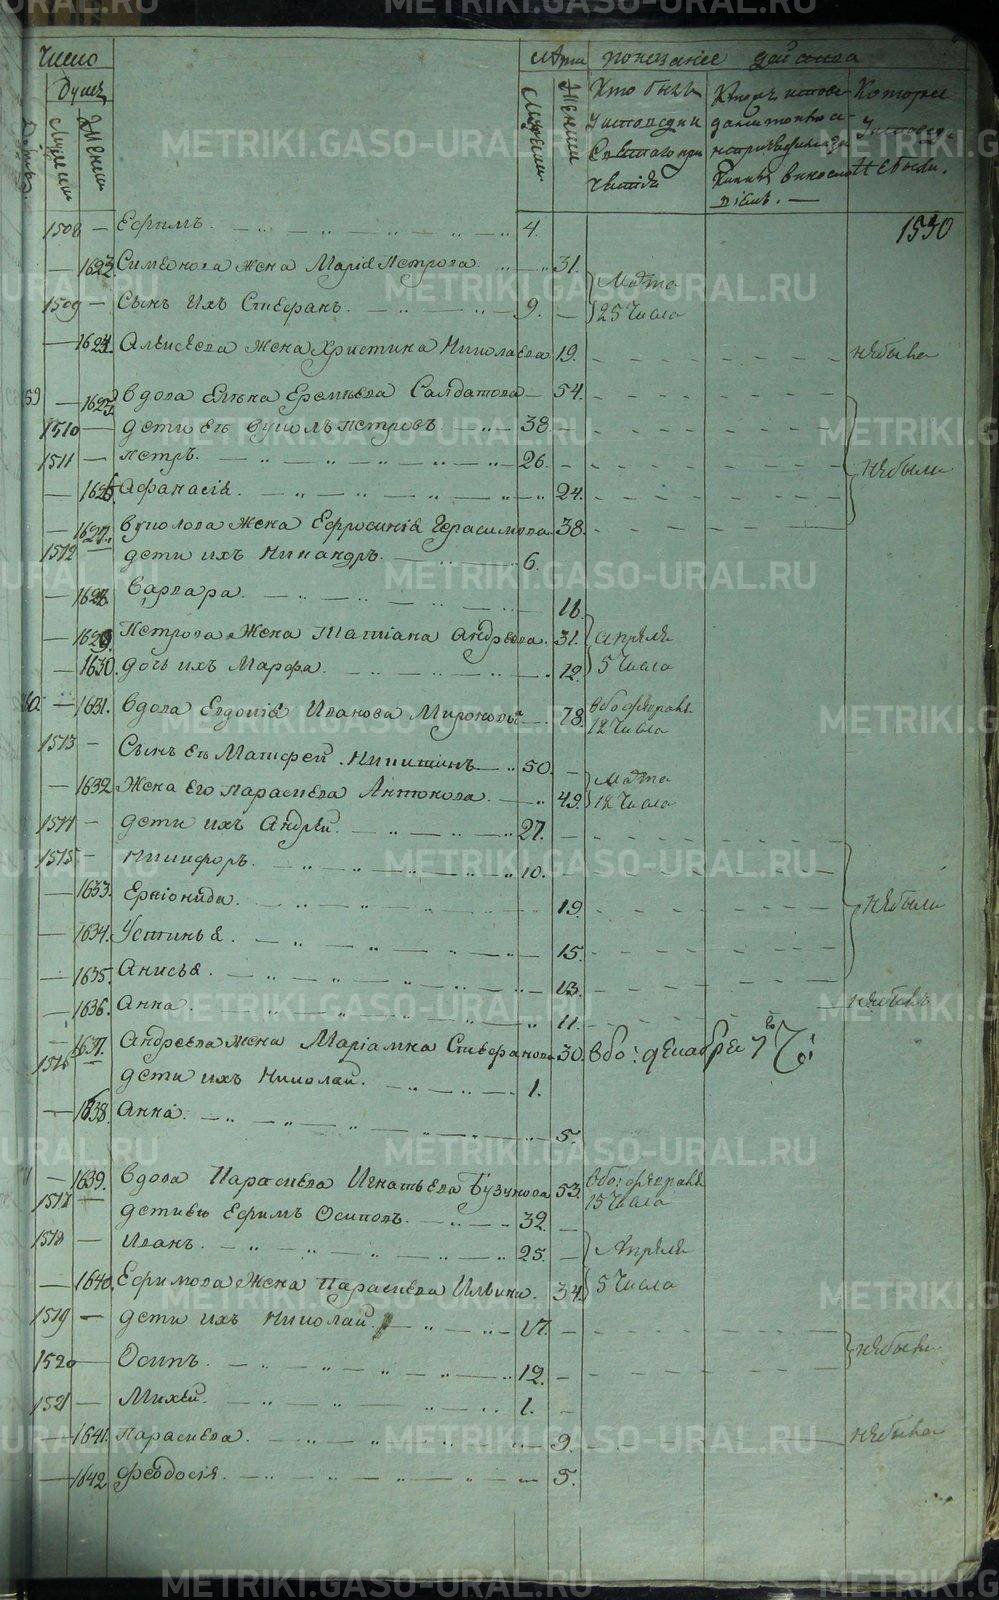 Число
Душъ
Мужеска
Женска
Лѣта
Мужеска
Женска
показаніе дѣйства
Кто былъ
у исповѣди и
Святаго при
частія
Которые
Не были.
1508 — Ефимъ. — 4.
1530
— 1623. Симеонова жена Марія Петрова. — 31.
Марта
1509 — Сынъ ихъ Стефанъ. — 9. —
25 числа
— 1624. Алексѣева жена Христина Николаева 19.
не была
59 — 1625. вдова Елена Еремѣева Салдатова — 54.
1510 — дети ея Вуколъ Петровъ. — 38. —
1511 — Петръ. — 26. —
не были
— 1626. Афанасія. — 24.
— 1627. Вуколова жена Ефросинія Герасимова. 38.
1512 — дети ихъ Никандръ. — 6.
— 1628. Варвара. — 11.
— 1629. Петрова жена Татіана Андреева. 31.
Апреля
— 1630. дочь ихъ Марфа. — 12.
5 числа
60. — 1631. вдова Евдокія Иванова Миронова — 78.
12 числа
1513 — Сынъ ея Матфей Никитинъ — 50. —
— 1632. Жена его Параскева Антонова. — 49.
Марта
12 числа
1514 — дети ихъ Андрей. — 27. —
1515 — Никифоръ. — 10. —
— 1633. — 19.
не были
— 1634. Устинья. — 15.
— 1635. Анисья. — 13.
— 1636. Анна. — 11.
не были
— 1637. Андреева жена Маріамна Стефанова 30.
1516 — дети ихъ Николай. — 1.
— 1638. Анна. — 5.
— 1639. вдова Параскева Игнатьева Бузунова 53.
15 числа
1517 — дети ея Ефимъ Осиповъ. — 32. —
1518 — Иванъ. — 25. —
Апреля
— 1640. Ефимова жена Параскева Ильина. 34.
5 числа
1519 — дети ихъ Николай. — 17. —
1520 — Осипъ. — 12. —
не были
1521 — Михей. — 1. —
— 1641. Параскева. — 9.
не была
— 1642 Феодосія. — 5.
METRIKI.GASO-URAL.RU